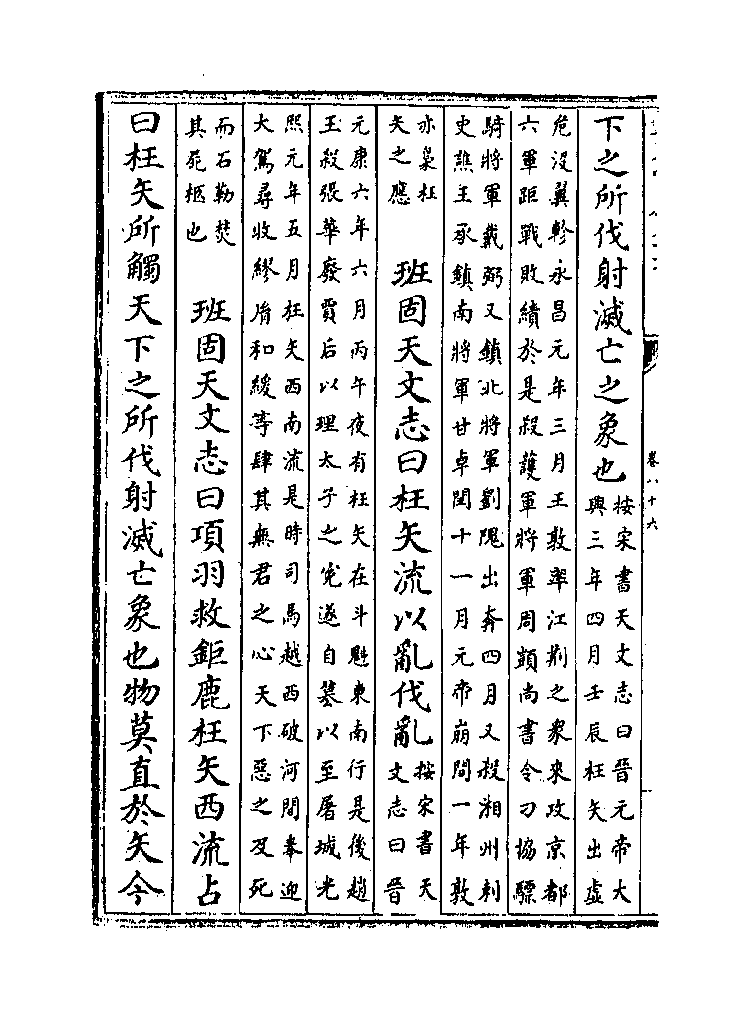 下之所伐射滅亡之象也
按宋書天文志曰晉元帝大
興三年四月壬辰枉矢出虛
危沒翼軫永昌元年三月王敦率江荆之衆來攻京都
六軍距戰敗績於是殺護軍將軍周顗尚書令刁協驃
騎將軍戴弼又鎮北將軍劉隗出奔四月又殺湘州刺
史譙王承鎮南將軍甘卓閏十一月元帝崩間一年敦
亦梟枉
矢之應
班固天文志曰枉矢流以亂伐亂
按宋書天
文志曰晉
元康六年六月丙午夜有枉矢在斗魁東南行是後趙
王殺張華廢賈后以理太子之寃遂自篡以至屠城光
熙元年五月枉矢西南流是時司馬越西破河間奉迎
大駕尋收繆胤和緩等肆其無君之心天下惡之及死
而石勒焚
其死柩也
班固天文志曰項羽救鉅鹿枉矢西流占
曰枉矢所觸天下之所伐射滅亡象也物莫直於矢今
卷八十六